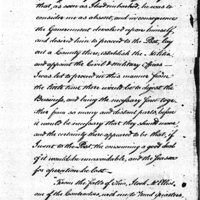 that, as soon as I had embarked, he was to
consider me as absent, and in consequence
the Government devolved upon himself,
and desired him to proceed to the Post, lay
out a County there, establish the Militia
and appoint the Civil & military officers
I was led to proceed in this manner from
the little time there would be to digest the
Business, and bring the necessary Guns together
for from as many and distant parts, before
it would be necessary that they should move
and the certainty there appeared to be that, if
I went to the Post the consuming a good deal
of it would be unavoidable, and the Season
for operation be lost
From the falls of Ohio, Mr. Elliot
one of the Contractors, will